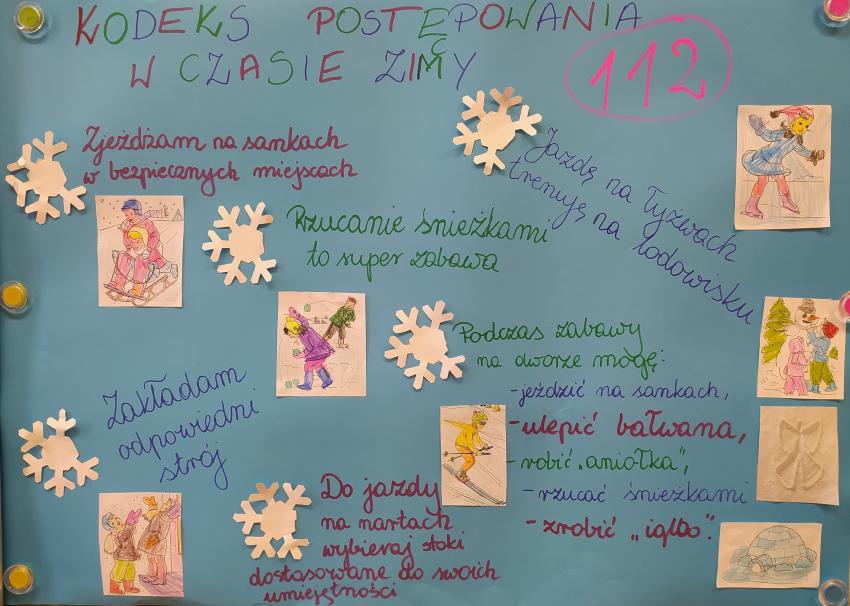 KODEKS POSTĘPOWANIA
W CZASIE ZIMY
112
Zjeżdżam na sankach
w bezpiecznych miejscach
Jazdę na łyżwach
trenuję na lodowisku
Rzucanie śnieżkami
to super zabawa
Podczas zabawy
na dworze mogę:
-jeździć na sankach,
-ulepić bałwana,
-robić „aniołka",
-rzucać śnieżkami
-zrobić „igloo".
Zakładam
odpowiedni
strój
Do jazdy
na nartach
wybieraj stoki
dostosowane do swoich
umiejętności